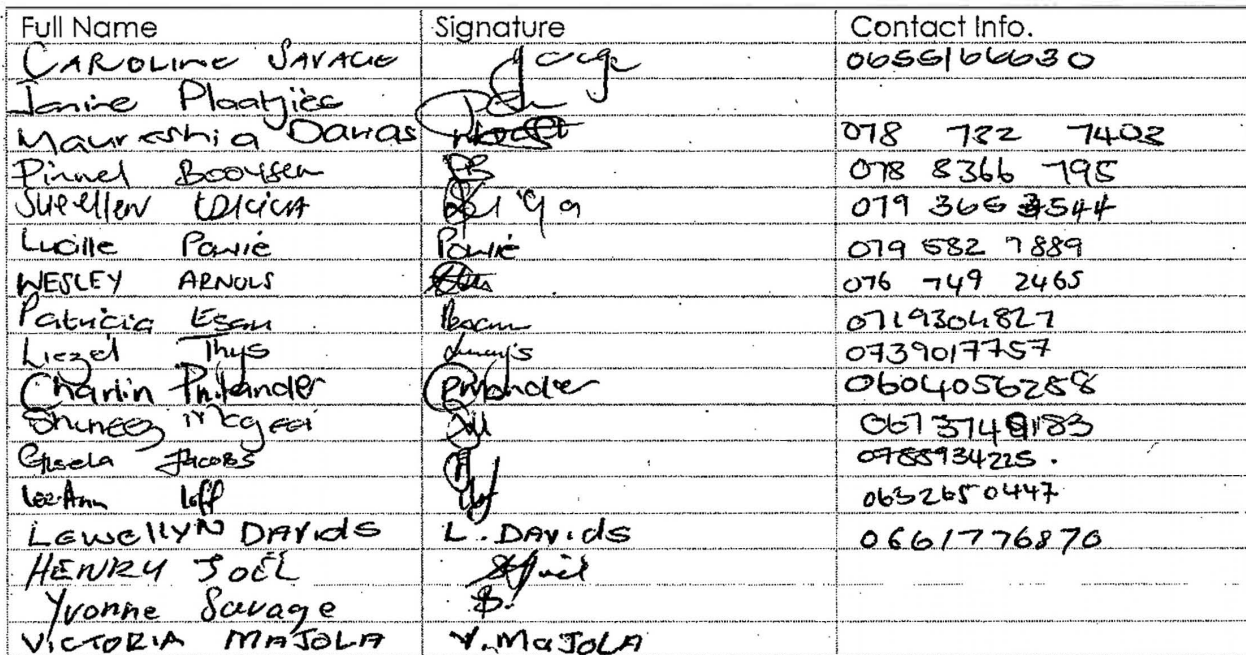 Full Name Signature Contact Info.
CAROLINE SAVAGE 0655166630
Janine Plaatjies
Maureshia Davias 078 782 7403
Pirmel Booysen PB 078 8366 795
Suellen 079 365 3544
Lucille Powie Powie 079 582 7889
WESLEY ARNOLS 076 749 2465
Patricia Esau Pesau 0719304827
Liezel Thys 0739017757
Charlin Philander Philander 0604056288
Shuneez Mcgeei 0673749183
Gisela JACOBS 0788934225.
Lee-Ann Loff 0632650447
LewellyN DAVIdS L. DAVIdS 0661776870
HENRY JOËL
Yvonne Savage B.
VICTORIA MAJOLA V. MaJOLA